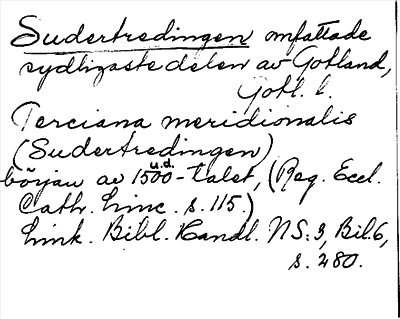 Sudertredingen omfattade
sydligaste delen av Gotland,
Gotl. l.
Terciana meridionalis
(Sudertredingen)
u.d.
början av 1500-talet, (Reg. Eccl.
Cath. Linc. s. 115.)
Link. Bibl. Handl. NS: 3, Bil. 6,
s. 280.